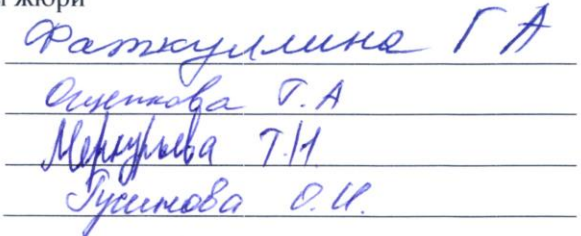 жюри
Фаткуллина Г А
Ощепкова Т.А
Меркурьева Т.Н
Гусинова О.И.